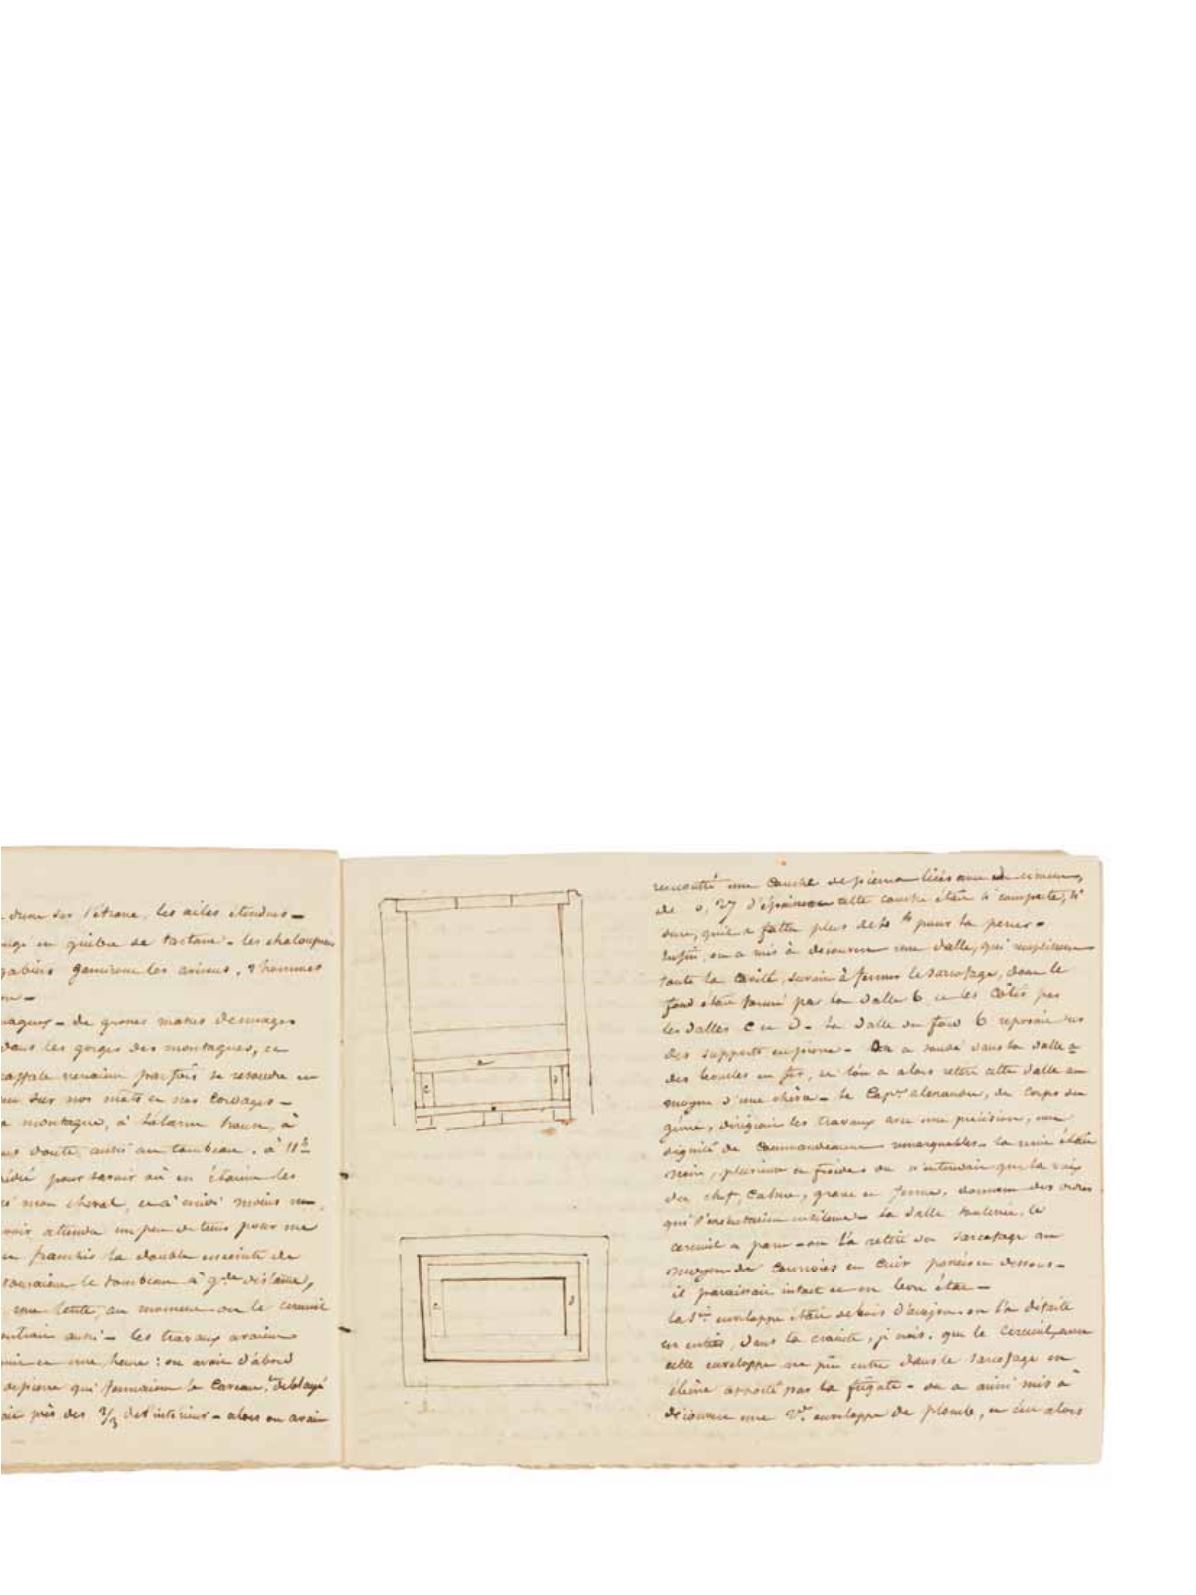 dune sur l'étrave, les ailes étendues —
en guibre de tartane – les chaloupes
gabiers les avirons, 8 hommes

nuageux – de grosses masses de nuages
dans les gorges des montagnes, et
raffale venaient parfois se resoudre en
sur nos mats et nos cordages –
montagne, à Salarne house, à
doute, aussi au tombeau. à 11h
pour savoir où en étaient les
mon cheval, et à midi moins un
avoir attendu un peu de tems pour me
franchis la double enceinte de
entouraient le tombeau à gde distance,
une tente, au moment ou le cerceuil
aussi – les travaux avaient
une heure : on avait d'abord
de pierre qui formaient le caveau, deblayé
près des 2/3 de l'interieur – alors on avait
a
c
d
b
c
d
rencontré une couche de pierres liées avec du ciment,
de 0,27 d'épaisseur cette couche était si compacte, si
dure, qu'il a fallu plus de 4 h pour la percer –
Enfin, on a mis à decouvert une dalle, qui
toute la cavité, servait à fermer le sarcofage, dont le
fond était formé par la dalle b et les côtés par
les dalles c et d – la dalle du fond b reposait sur
des supports en pierre – On a dans la dalle a
des boucles en fer, et l'on a alors retiré cette dalle au
moyen d'une chèvre – le Capne alexander, du corps du
génie, dirigeait les travaux avec une précision, une
dignité de commandement remarquables – la nuit était
noire, pluvieuse et froide, on n'entendait que la voix
du chef, calme, grave et ferme, donnant des ordres
qui s'exécutaient en silence – la dalle soulevée, le
cerceuil a paru – on l'a retiré du sarcofage au
moyen de courroies en cuir passées en dessous –
il paraissait intact et en bon état –
la 1ère enveloppe était de bois d'acajou. on l'a défaite
en entier, dans la crainte, je crois, que le cerceuil avec
cette enveloppe ne put entrer dans le sarcofage en
ébène apporté par la frégate – on a ainsi mis à
découvert une 2e enveloppe de plomb, et c'est alors